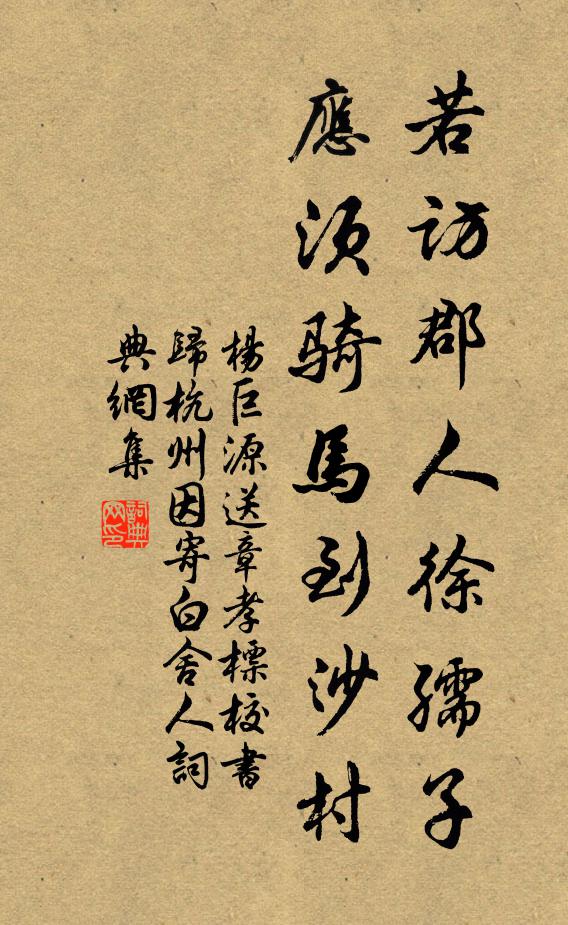 若訪郡人徐孺子
應須騎馬到沙村
楊巨源送章孝標校書
歸杭州因寄白舍人詞
典網集
詞典
网印